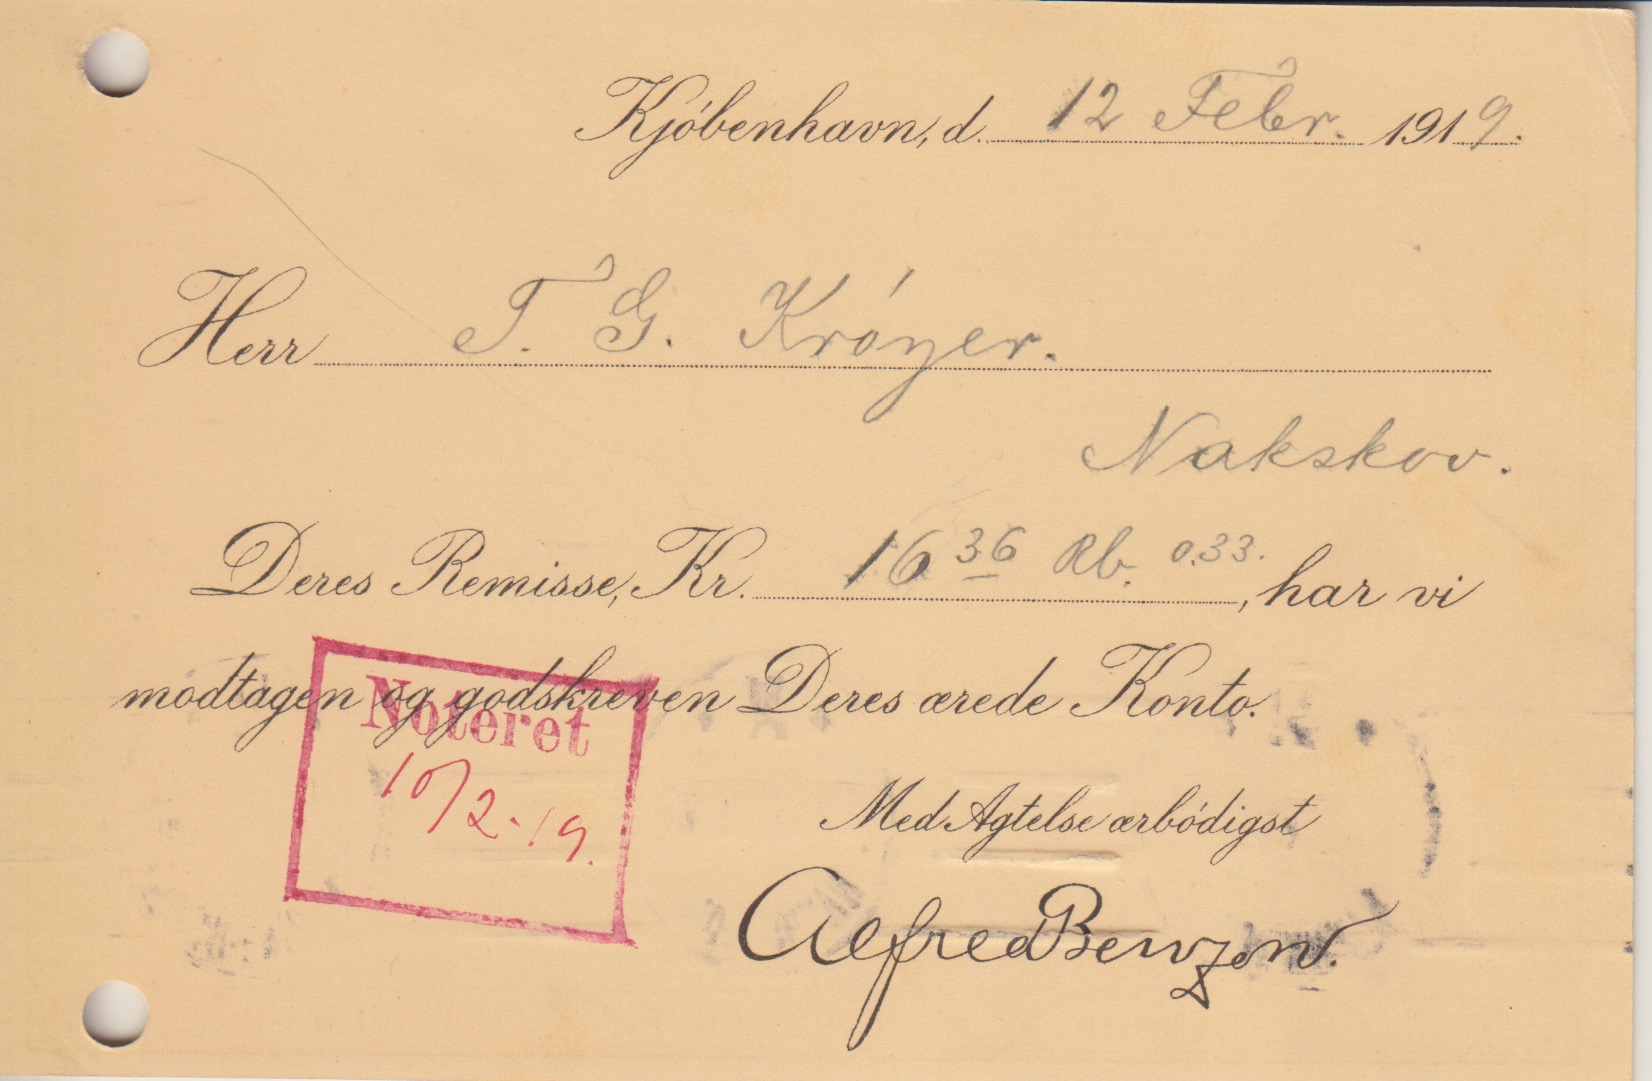 Kjóbenhavn, d. 12 Febr. 1919.
Herr T. G. Króyer.
Nakskov.
Deres Remisse, Kr. 16 36 Rb. 0.33., har vi
modtagen og godskreven Deres ærede Konto.
Noteret
10/2-19.
Med Agtelse ærbódigst
Alfred Benzon.